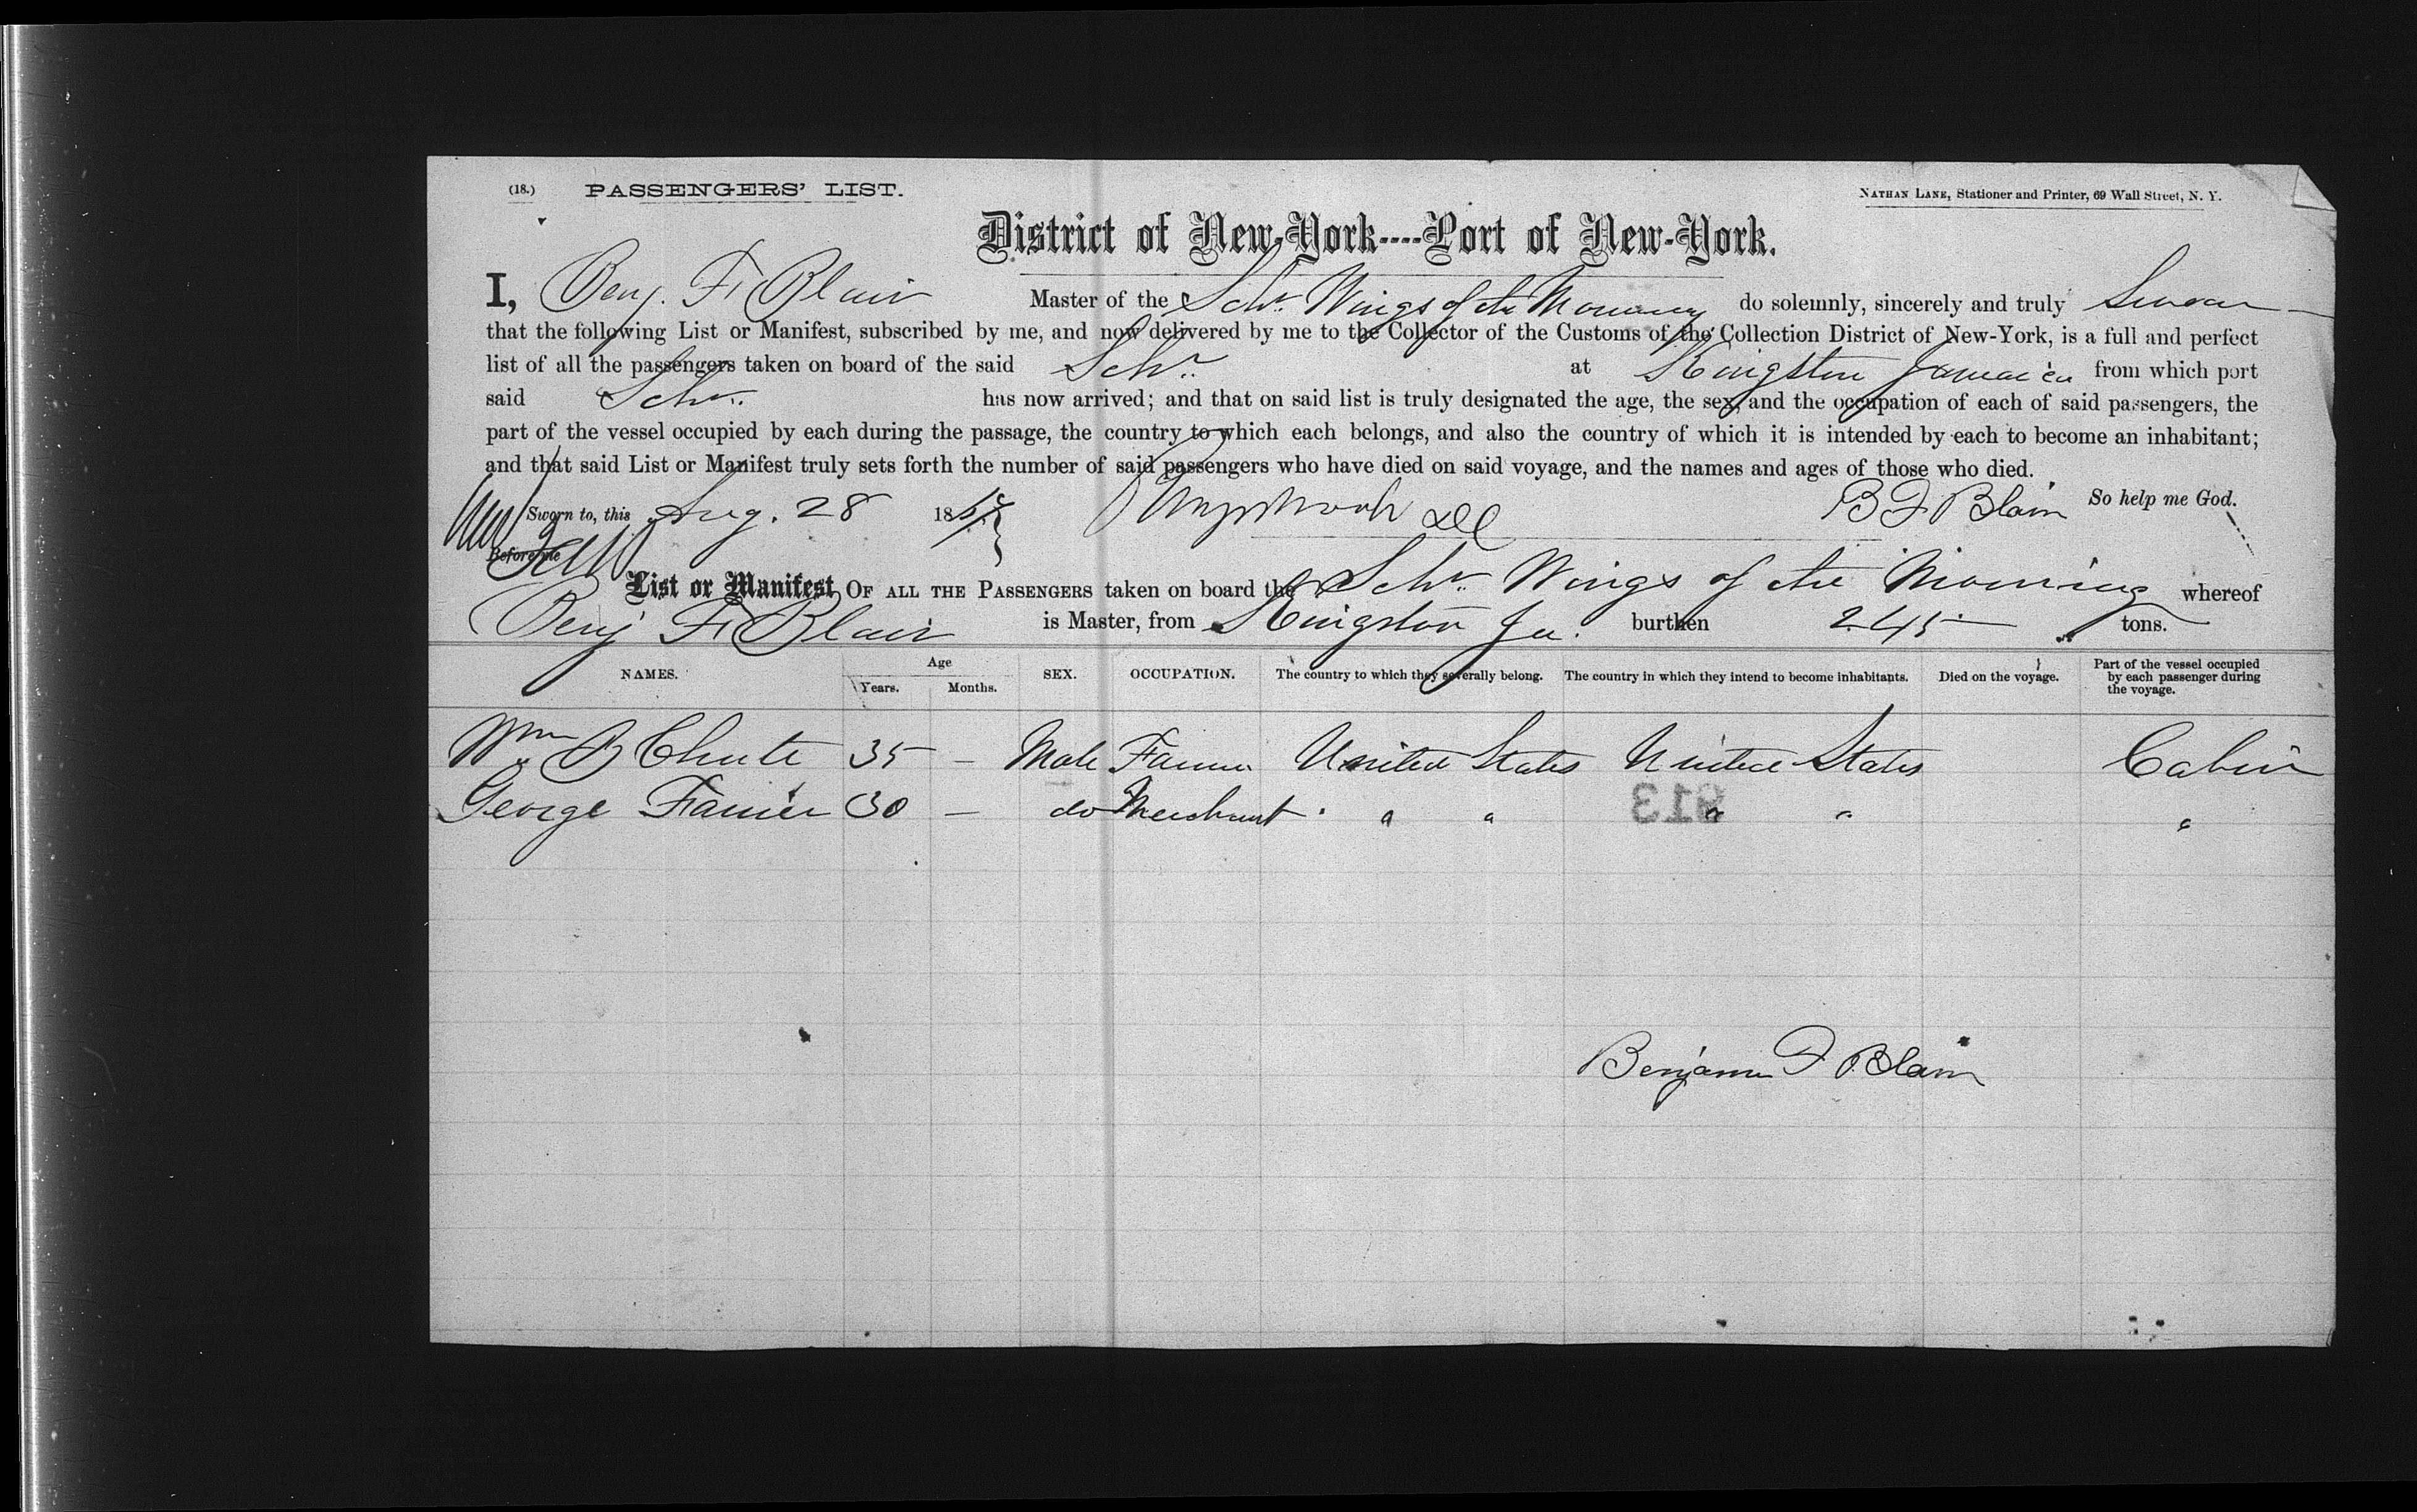 (18.) PASSENGERS' LIST. NATHAN LANE, Stationer and Printer, 69 Wall Street, N. Y.
District of New-York----Port of New-York.
I, Benj. F. Blair Master of the Schr. Wings of the Morning do solemnly, sincerely and truly Swear
that the following List or Manifest, subscribed by me, and now delivered by me to the Collector of the Customs of the Collection District of New-York, is a full and perfect
list of all the passengers taken on board of the said Schr. at Kingston Jamaica from which port
said Schr. has now arrived; and that on said list is truly designated the age, the sex, and the occupation of each of said passengers, the
part of the vessel occupied by each during the passage, the country to which each belongs, and also the country of which it is intended by each to become an inhabitant;
and that said List or Manifest truly sets forth the number of said passengers who have died on said voyage, and the names and ages of those who died.
Sworn to, this Aug. 28 18 B F Blair So help me God.
Before me
List or Manifest OF ALL THE PASSENGERS taken on board the Schr. Wings of the Morning whereof
Benj F. Blair is Master, from Kingston Ja. burthen 245 tons.
NAMES. Age Years. Months. SEX. OCCUPATION. The country to which they severally belong. The country in which they intend to become inhabitants. Died on the voyage. Part of the vessel occupied by each passenger during the voyage.
Wm. B Chute 35 - Male Farmer United States United States Cabin
George 30 - do Merchant " " " " "
913
Benjamin F Blair